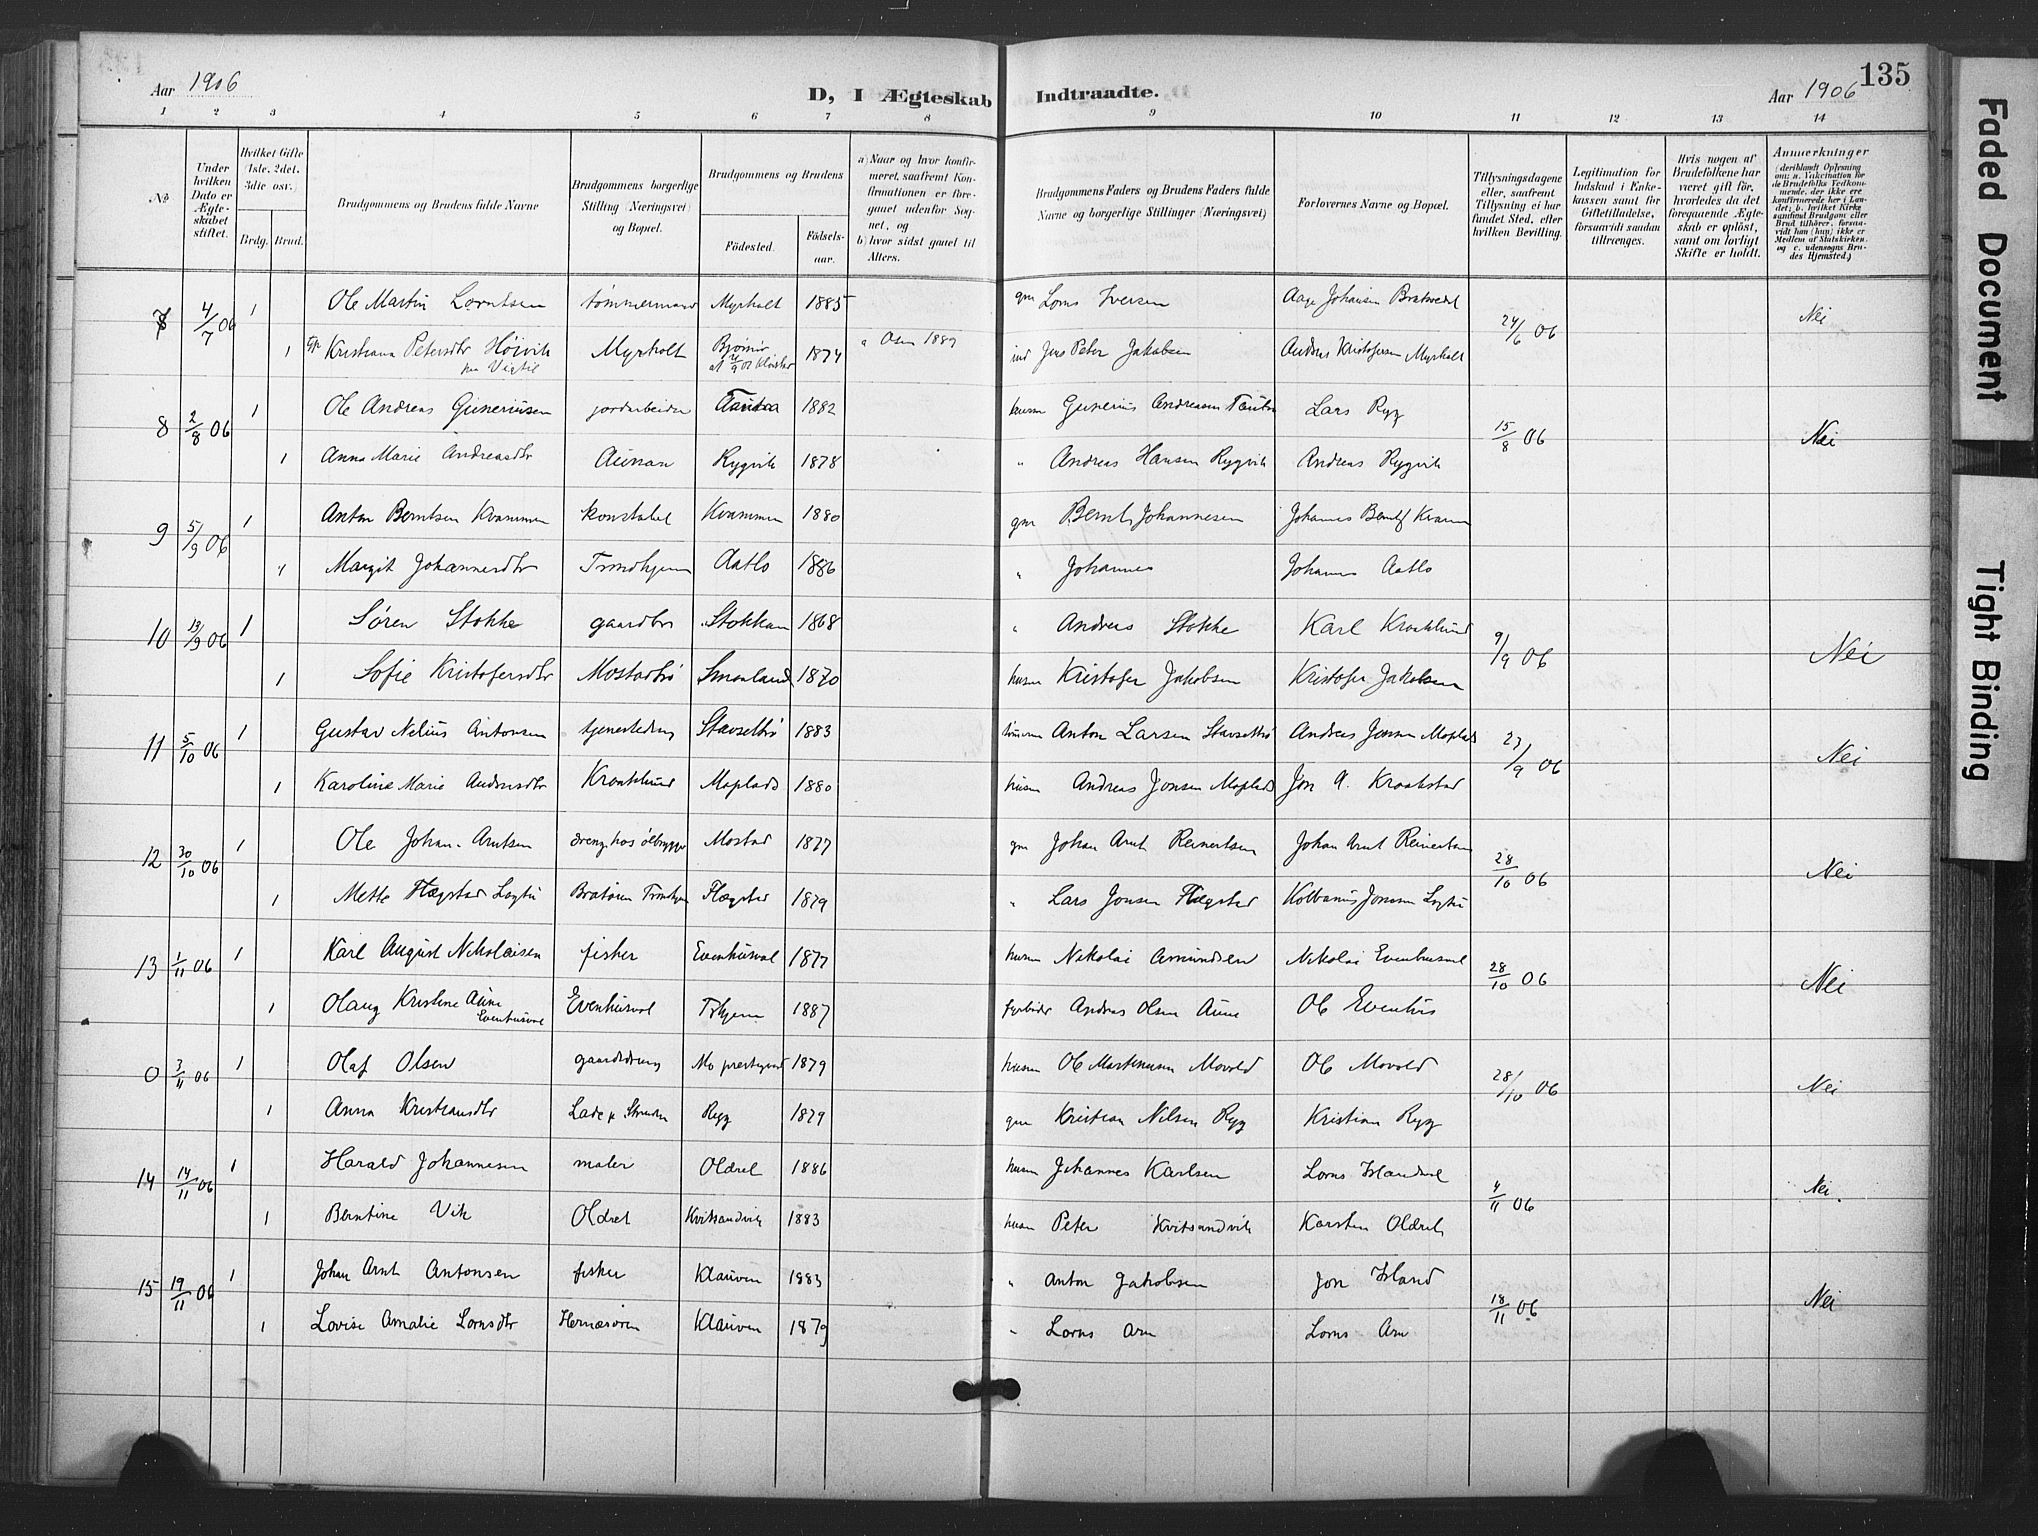 Aar 1906
D, I Ægteskab Indtraadte.
Aar 1906
135
1 2 3 4 5 6 7 8 9 10 11 12 13 14
No
Under hvilken Dato er Ægteskabet stiftet.
Hvilket Gifte (1ste, 2det, 3die osv.)
Brdg. Brud.
Brudgommens og Brudens fulde Navne
Brudgommens borgerlige Stilling (Næringsvei) og Bopæl.
Brudgommens og Brudens
Födested. Födsels-aar.
a) Naar og hvor konfirmeret, saafremt Konfirmationen er foregaaet udenfor Sognet, og
b) hvor sidst gaaet til Alters.
Brudgommens Faders og Brudens Faders fulde Navne og borgerlige Stillinger (Næringsvei)
Forlovernes Navne og Bopæl.
Tillysningsdagene eller, saafremt Tillysning ei har fundet Sted, efter hvilken Bevilling.
Legitimation for Indskud i Enkekassen samt for Giftetilladelse, forsaavidt saadan tiltrænges.
Hvis nogen af Brudefolkene har været gift før, hvorledes da det foregaaende Ægteskab er opløst, samt om lovligt Skifte er holdt.
Anmerkninger
(deriblandt Oplysning om: a. Vakcination for de Brudefolks Vedkommende, der ikke ere konfirmerede her i Landet; b. hvilket Kirkesamfund Brudgom eller Brud tilhører, forsaavidt han (hun) ikke er Medlem af Statskirken, og c. udensogns Brudes Hjemsted.)
7 4/7 06 1 Ole Martin Lorntsen tømmermand Myrholt 1885 gm Lorns Iversen Aage Johansen Bratvedt 24/6 06 Nei
1 Kristiana Petersdtr Høivik Myrholt Bjørnør 1874 a Osen 1889 ind Jens Peter Jakobsen Andreas Kristofersen Myrholt
8 2/8 06 1 Ole Andreas Guneriusen jordarbeider Tautra 1882 husm Gunerius Andreasen Tautra Lars Ryg 15/8 06 Nei
1 Anna Marie Andreasdtr Aunan Rygvik 1878 " Andreas Hansen Rygvik Andreas Rygvik
9 5/9 06 1 Anton Berntsen Kvammen konstabel Kvammen 1880 gm Bernt Johannesen Johannes Berntsen Kvammen
1 Margit Johannesdtr Trondhjem Aatlo 1886 " Johannes Johannes Aatlo
10 13/9 06 1 Søren Stokke gaardbr Stokkan 1868 " Andreas Stokke Karl Kraaklund 9/9 06 Nei
1 Sofie Kristofersdtr Mostadbø Smaaland 1870 husm Kristofer Jakobsen Kristofer Jakobsen
11 5/10 06 1 Gustav Nelius Antonsen tjenestedreng Stavsetbø 1883 Anton Larsen Stavsetbø Andreas Jonsen Moplads 23/9 06 Nei
1 Karoline Marie Andreasdtr Kraaklund Moplads 1880 husm Andreas Jonsen Moplads Jon A. Kraakstad
12 30/10 06 1 Ole Johan Arntsen dreng hos ølbrygger Mostad 1877 gm Johan Arnt Reinertsen Johan Arnt Reinertsen 28/10 06 Nei
1 Mette Flægstad Lagtu Bratøren Trondhjem Flægstad 1879 " Lars Jonsen Flægstad Kolbanus Jonsen Lagtu
13 1/11 06 1 Karl August Nikolaisen fisker Evenhusvol 1877 husm Nikolai Amundsen Nikolai Evenhusvol 28/10 06 Nei
1 Olaug Kristine Aune Evenhusvol Evenhusvol Trhjem 1887 fyrbøder Andreas Olsen Aune Ole Evenhus
0 3/11 06 1 Olaf Olsen gaardsdreng Mo prestegaard 1879 husm Ole Martinusen Movold Ole Movold 28/10 06 Nei
1 Anna Kristiansdtr Lade p. Strinden Ryg 1879 gm Kristian Nilsen Ryg Kristian Ryg
14 14/11 06 1 Harald Johannesen maler Oldrel 1886 husm Johannes Karlsen Lorns Islandsvol 4/11 06 Nei.
1 Berntine Vik Oldrel Kvitsandvik 1883 husm Peter Kvitsandvik Karsten Oldrel
15 19/11 06 1 Johan Arnt Antonsen fisker Klauven 1883 " Anton Jakobsen Jon Island 18/11 06 Nei
1 Lovise Amalie Lornsdtr Hernæsøren Klauven 1879 " Lorns Arn Lorns Arn
Faded Document
Tight Binding